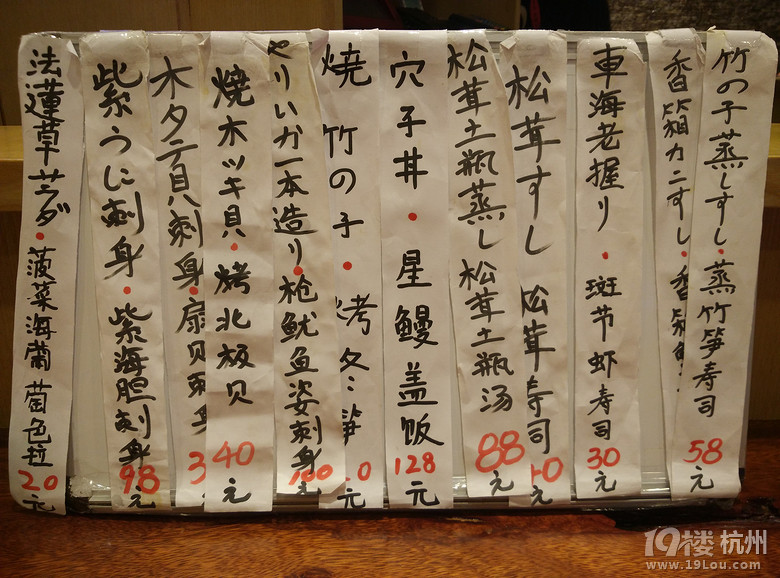 竹の子蒸しすし·蒸竹笋寿司 58
香箱カニすし·香箱
車海老握り·斑节虾寿司 30元
松茸すし 松茸寿司 40元
松茸土瓶蒸し 松茸土瓶汤 88元
穴子丼·星鳗盖饭 128元
焼竹の子·烤冬笋 0元
やりいか一本造り·枪鱿鱼姿刺身 100元
焼ホッキ貝·烤北极贝 40元
ホタテ貝刺身·扇贝刺身 3
紫うに刺身·紫海胆刺身 98元
法蓮草サラダ·菠菜海葡萄色拉 20元
19楼 杭州
www.19Lou.com